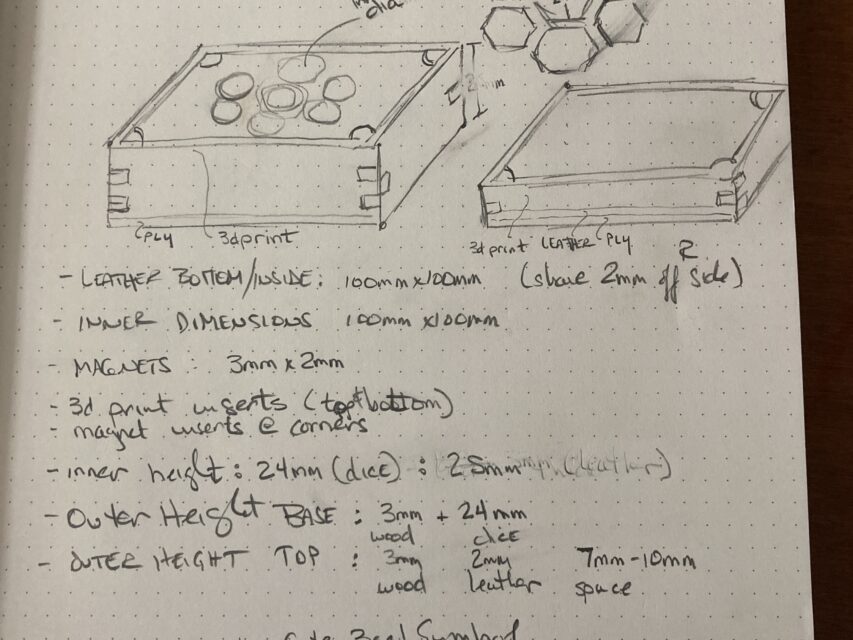 dia
mm
PLY 3dprint
3d print LEATHER PLY
- LEATHER BOTTOM/INSIDE: 100mm x 100mm (shave 2mm off R side)
- INNER DIMENSIONS 100mm x 100mm
- MAGNETS : 3mm x 2mm
- 3d print inserts (top+bottom)
- magnet inserts @ corners
- inner height : 24mm (dice) : 25mm (leather)
- Outer Height BASE : 3mm + 24mm
wood dice
- OUTER HEIGHT TOP : 3mm 2mm 7mm-10mm
wood leather space